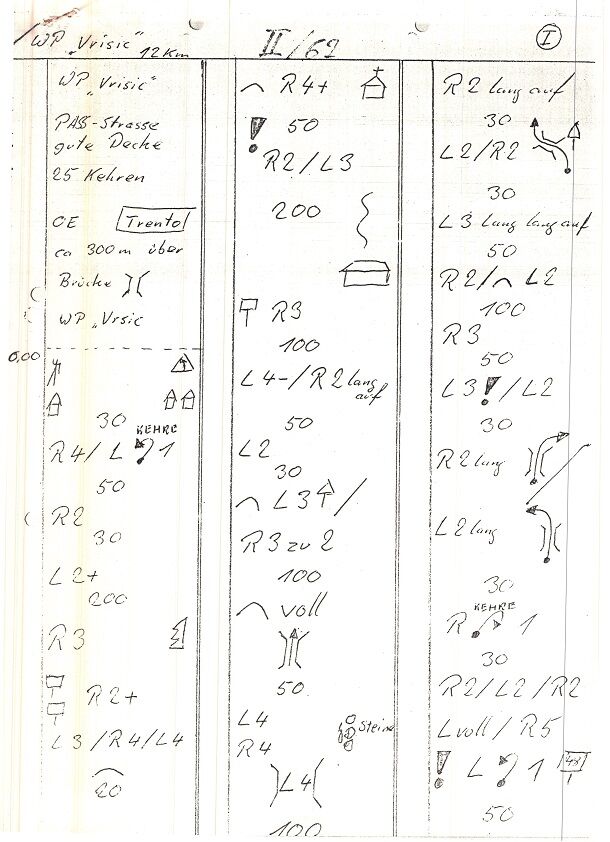 WP „Vrisic" 12Km
II/62
I
WP „Vrisic"
PAß-Strasse
gute Decke
25 Kehren
OE Trento
ca 300m über
Brücke
WP „Vrsic
0,00
30
KEHRE
R4/ L 1
50
R2
30
L2+
200
R3
R2+
L3/R4/L4
20
R4+
50
R2/L3
200
R3
100
L4-/R2 lang
auf
50
L2
30
L3 /
R3 zu 2
100
voll
50
L4
Steine
R4
L4
100
R2 lang auf
30
L2/R2
30
L3 lang lang auf
50
R2/ L2
100
R3
50
L3!/L2
30
R2 lang
L2 lang
30
KEHRE
R 1
30
R2/L2/R2
Lvoll/R5
! L 1
50